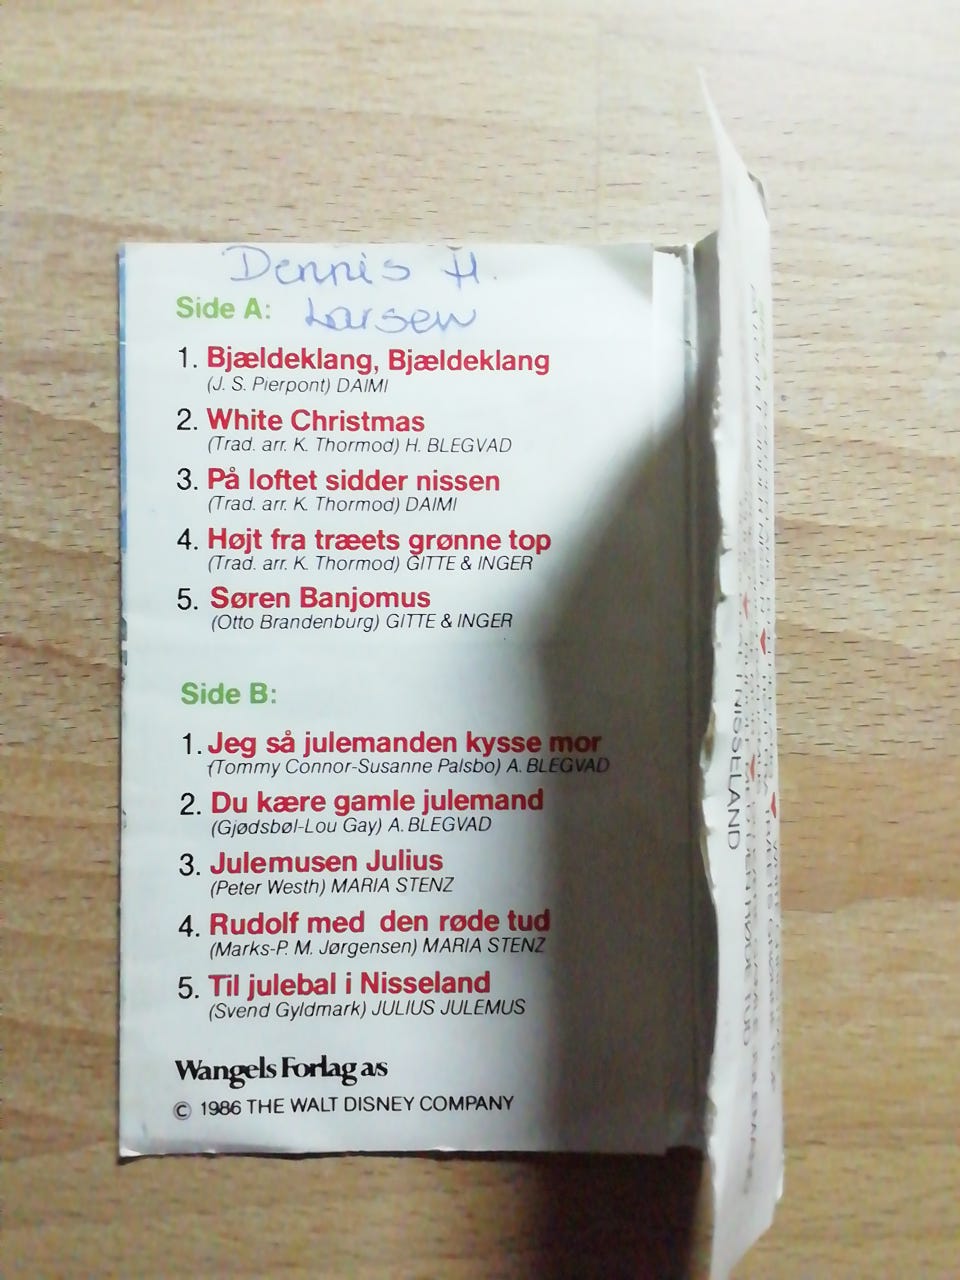 Dennis H.
Larsen
Side A:
1. Bjældeklang, Bjældeklang
(J. S. Pierpont) DAIMI
2. White Christmas
(Trad. arr. K. Thormod) H. BLEGVAD
3. På loftet sidder nissen
(Trad. arr. K. Thormod) DAIMI
4. Højt fra træets grønne top
(Trad. arr. K. Thormod) GITTE & INGER
5. Søren Banjomus
(Otto Brandenburg) GITTE & INGER
Side B:
1. Jeg så julemanden kysse mor
(Tommy Connor-Susanne Palsbo) A. BLEGVAD
2. Du kære gamle julemand
(Gjødsbøl-Lou Gay) A. BLEGVAD
3. Julemusen Julius
(Peter Westh) MARIA STENZ
4. Rudolf med den røde tud
(Marks-P. M. Jørgensen) MARIA STENZ
5. Til julebal i Nisseland
(Svend Gyldmark) JULIUS JULEMUS
Wangels Forlag a/s
© 1986 THE WALT DISNEY COMPANY
NISSELAND